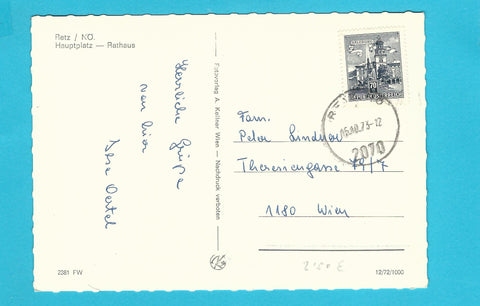 Retz / NÖ.
Hauptplatz — Rathaus
Herrliche Grüße
von hier
Oertel
Fotoverlag A. Kellner Wien — Nachdruck verboten
2381 FW
70
REPUBLIK ÖSTERREICH
RETZ
16.10.73-12
2070
Fam.
Peter Lindner
Theresiengasse
1180 Wien
12/72/1000